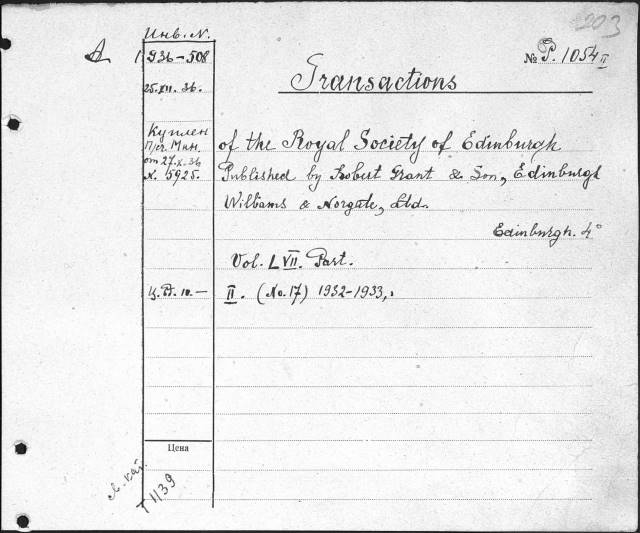 203
Инв. N.
А 1936-508 № P. 1054 II
25.XII.36. Transactions
Куплен
of the Royal Society of Edinburgh
от 27.X.36 Published by Robert Grant & Son, Edinburgh
N. 5925.
Williams & Norgate, Ltd.
Edinburgh. 4°
Vol. LVII. Part.
II. (No. 17) 1932-1933,
Цена
T 1139